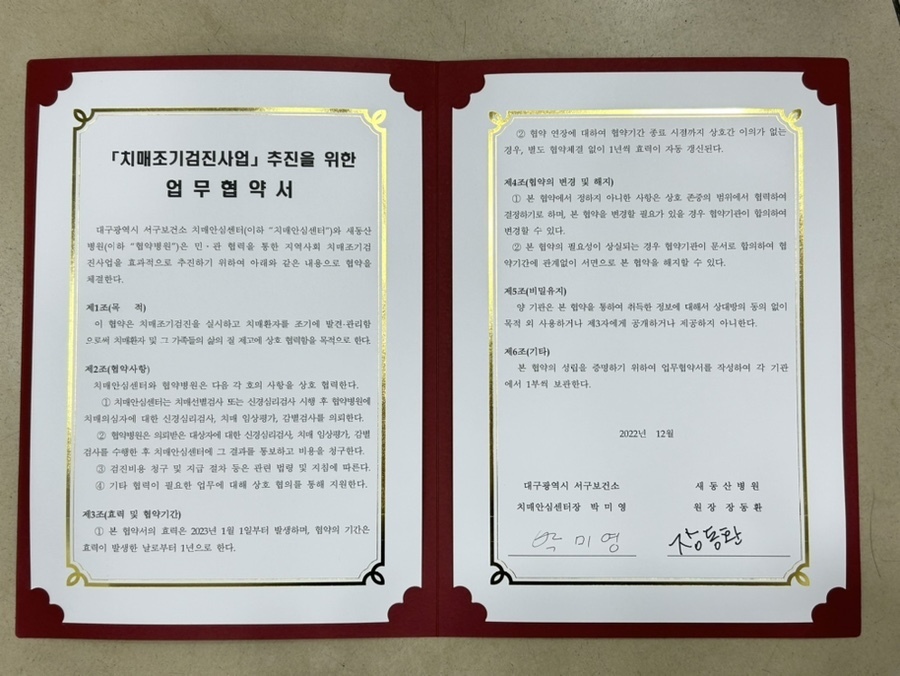 「치매조기검진사업」 추진을 위한
업 무 협 약 서
대구광역시 서구보건소 치매안심센터(이하 “치매안심센터”)와 새동산
병원(이하 “협약병원”)은 민·관 협력을 통한 지역사회 치매조기검
진사업을 효과적으로 추진하기 위하여 아래와 같은 내용으로 협약을
체결한다.
제1조(목 적)
이 협약은 치매조기검진을 실시하고 치매환자를 조기에 발견·관리함
으로써 치매환자 및 그 가족들의 삶의 질 제고에 상호 협력함을 목적으로 한다.
제2조(협약사항)
치매안심센터와 협약병원은 다음 각 호의 사항을 상호 협력한다.
① 치매안심센터는 치매선별검사 또는 신경심리검사 시행 후 협약병원에
치매의심자에 대한 신경심리검사, 치매 임상평가, 감별검사를 의뢰한다.
② 협약병원은 의뢰받은 대상자에 대한 신경심리검사, 치매 임상평가, 감별
검사를 수행한 후 치매안심센터에 그 결과를 통보하고 비용을 청구한다.
③ 검진비용 청구 및 지급 절차 등은 관련 법령 및 지침에 따른다.
④ 기타 협력이 필요한 업무에 대해 상호 협의를 통해 지원한다.
제3조(효력 및 협약기간)
① 본 협약서의 효력은 2023년 1월 1일부터 발생하며, 협약의 기간은
효력이 발생한 날로부터 1년으로 한다.
② 협약 연장에 대하여 협약기간 종료 시점까지 상호간 이의가 없는
경우, 별도 협약체결 없이 1년씩 효력이 자동 갱신된다.
제4조(협약의 변경 및 해지)
① 본 협약에서 정하지 아니한 사항은 상호 존중의 범위에서 협력하여
결정하기로 하며, 본 협약을 변경할 필요가 있을 경우 협약기관이 합의하여
변경할 수 있다.
② 본 협약의 필요성이 상실되는 경우 협약기관이 문서로 합의하여 협
약기간에 관계없이 서면으로 본 협약을 해지할 수 있다.
제5조(비밀유지)
양 기관은 본 협약을 통하여 취득한 정보에 대해서 상대방의 동의 없이
목적 외 사용하거나 제3자에게 공개하거나 제공하지 아니한다.
제6조(기타)
본 협약의 성립을 증명하기 위하여 업무협약서를 작성하여 각 기관
에서 1부씩 보관한다.
2022년 12월
대구광역시 서구보건소
치매안심센터장 박 미 영
박 미 영
새 동 산 병 원
원 장 장 동 환
장동환